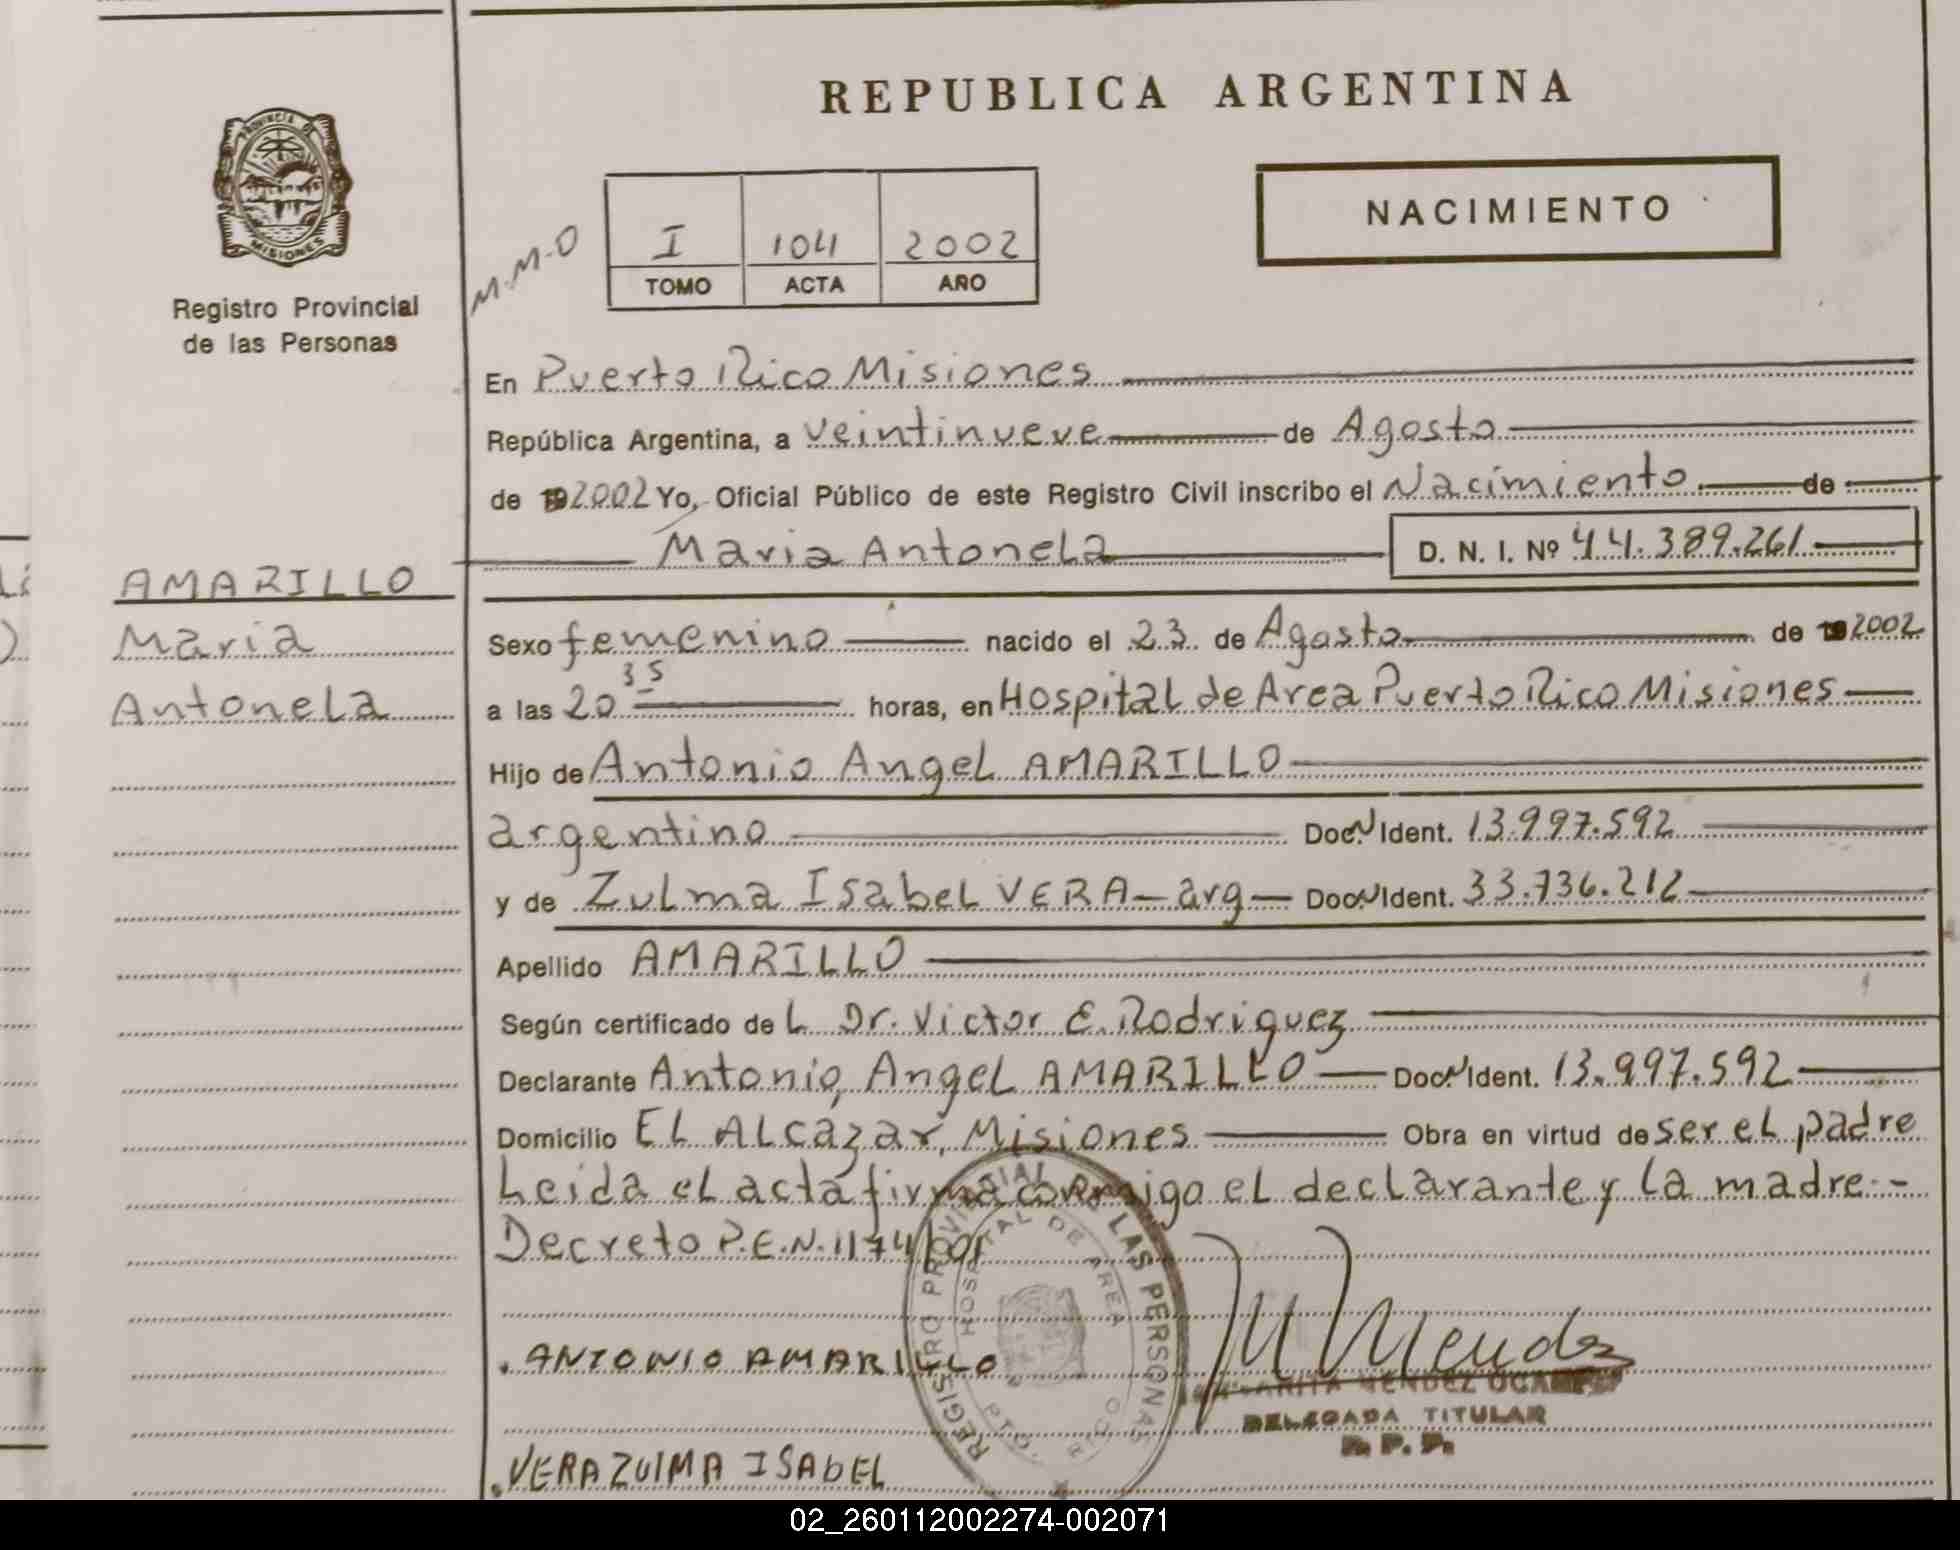 REPUBLICA ARGENTINA
PROVINCIA DE
MISIONES
Registro Provincial
de las Personas
M.M.O
I 104 2002
TOMO ACTA AÑO
NACIMIENTO
En Puerto Rico Misiones
República Argentina, a veintinueve de Agosto
de 192002 Yo, Oficial Público de este Registro Civil inscribo el Nacimiento de
Maria Antonela D. N. I. Nº 44.389.261
AMARILLO
Maria
Antonela
Sexo femenino nacido el 23 de Agosto de 192002
a las 20 35 horas, en Hospital de Area Puerto Rico Misiones
Hijo de Antonio Angel AMARILLO
argentino Doc.N Ident. 13.997.592
y de Zulma Isabel VERA - arg - Doc.N Ident. 33.736.212
Apellido AMARILLO
Según certificado de L Dr. Victor E. Rodriguez
Declarante Antonio Angel AMARILLO Doc.N Ident. 13.997.592
Domicilio El Alcazar, Misiones Obra en virtud de ser el padre
Leida el acta firma conmigo el declarante y la madre.-
Decreto P.E.N. 1174/01
REGISTRO PROVINCIAL DE LAS PERSONAS
HOSPITAL DE AREA
PTO. RICO
. ANTONIO AMARILLO
MENDEZ
DELEGADA TITULAR
R. P. P.
. VERA ZUlMA ISAbEL
02_260112002274-002071